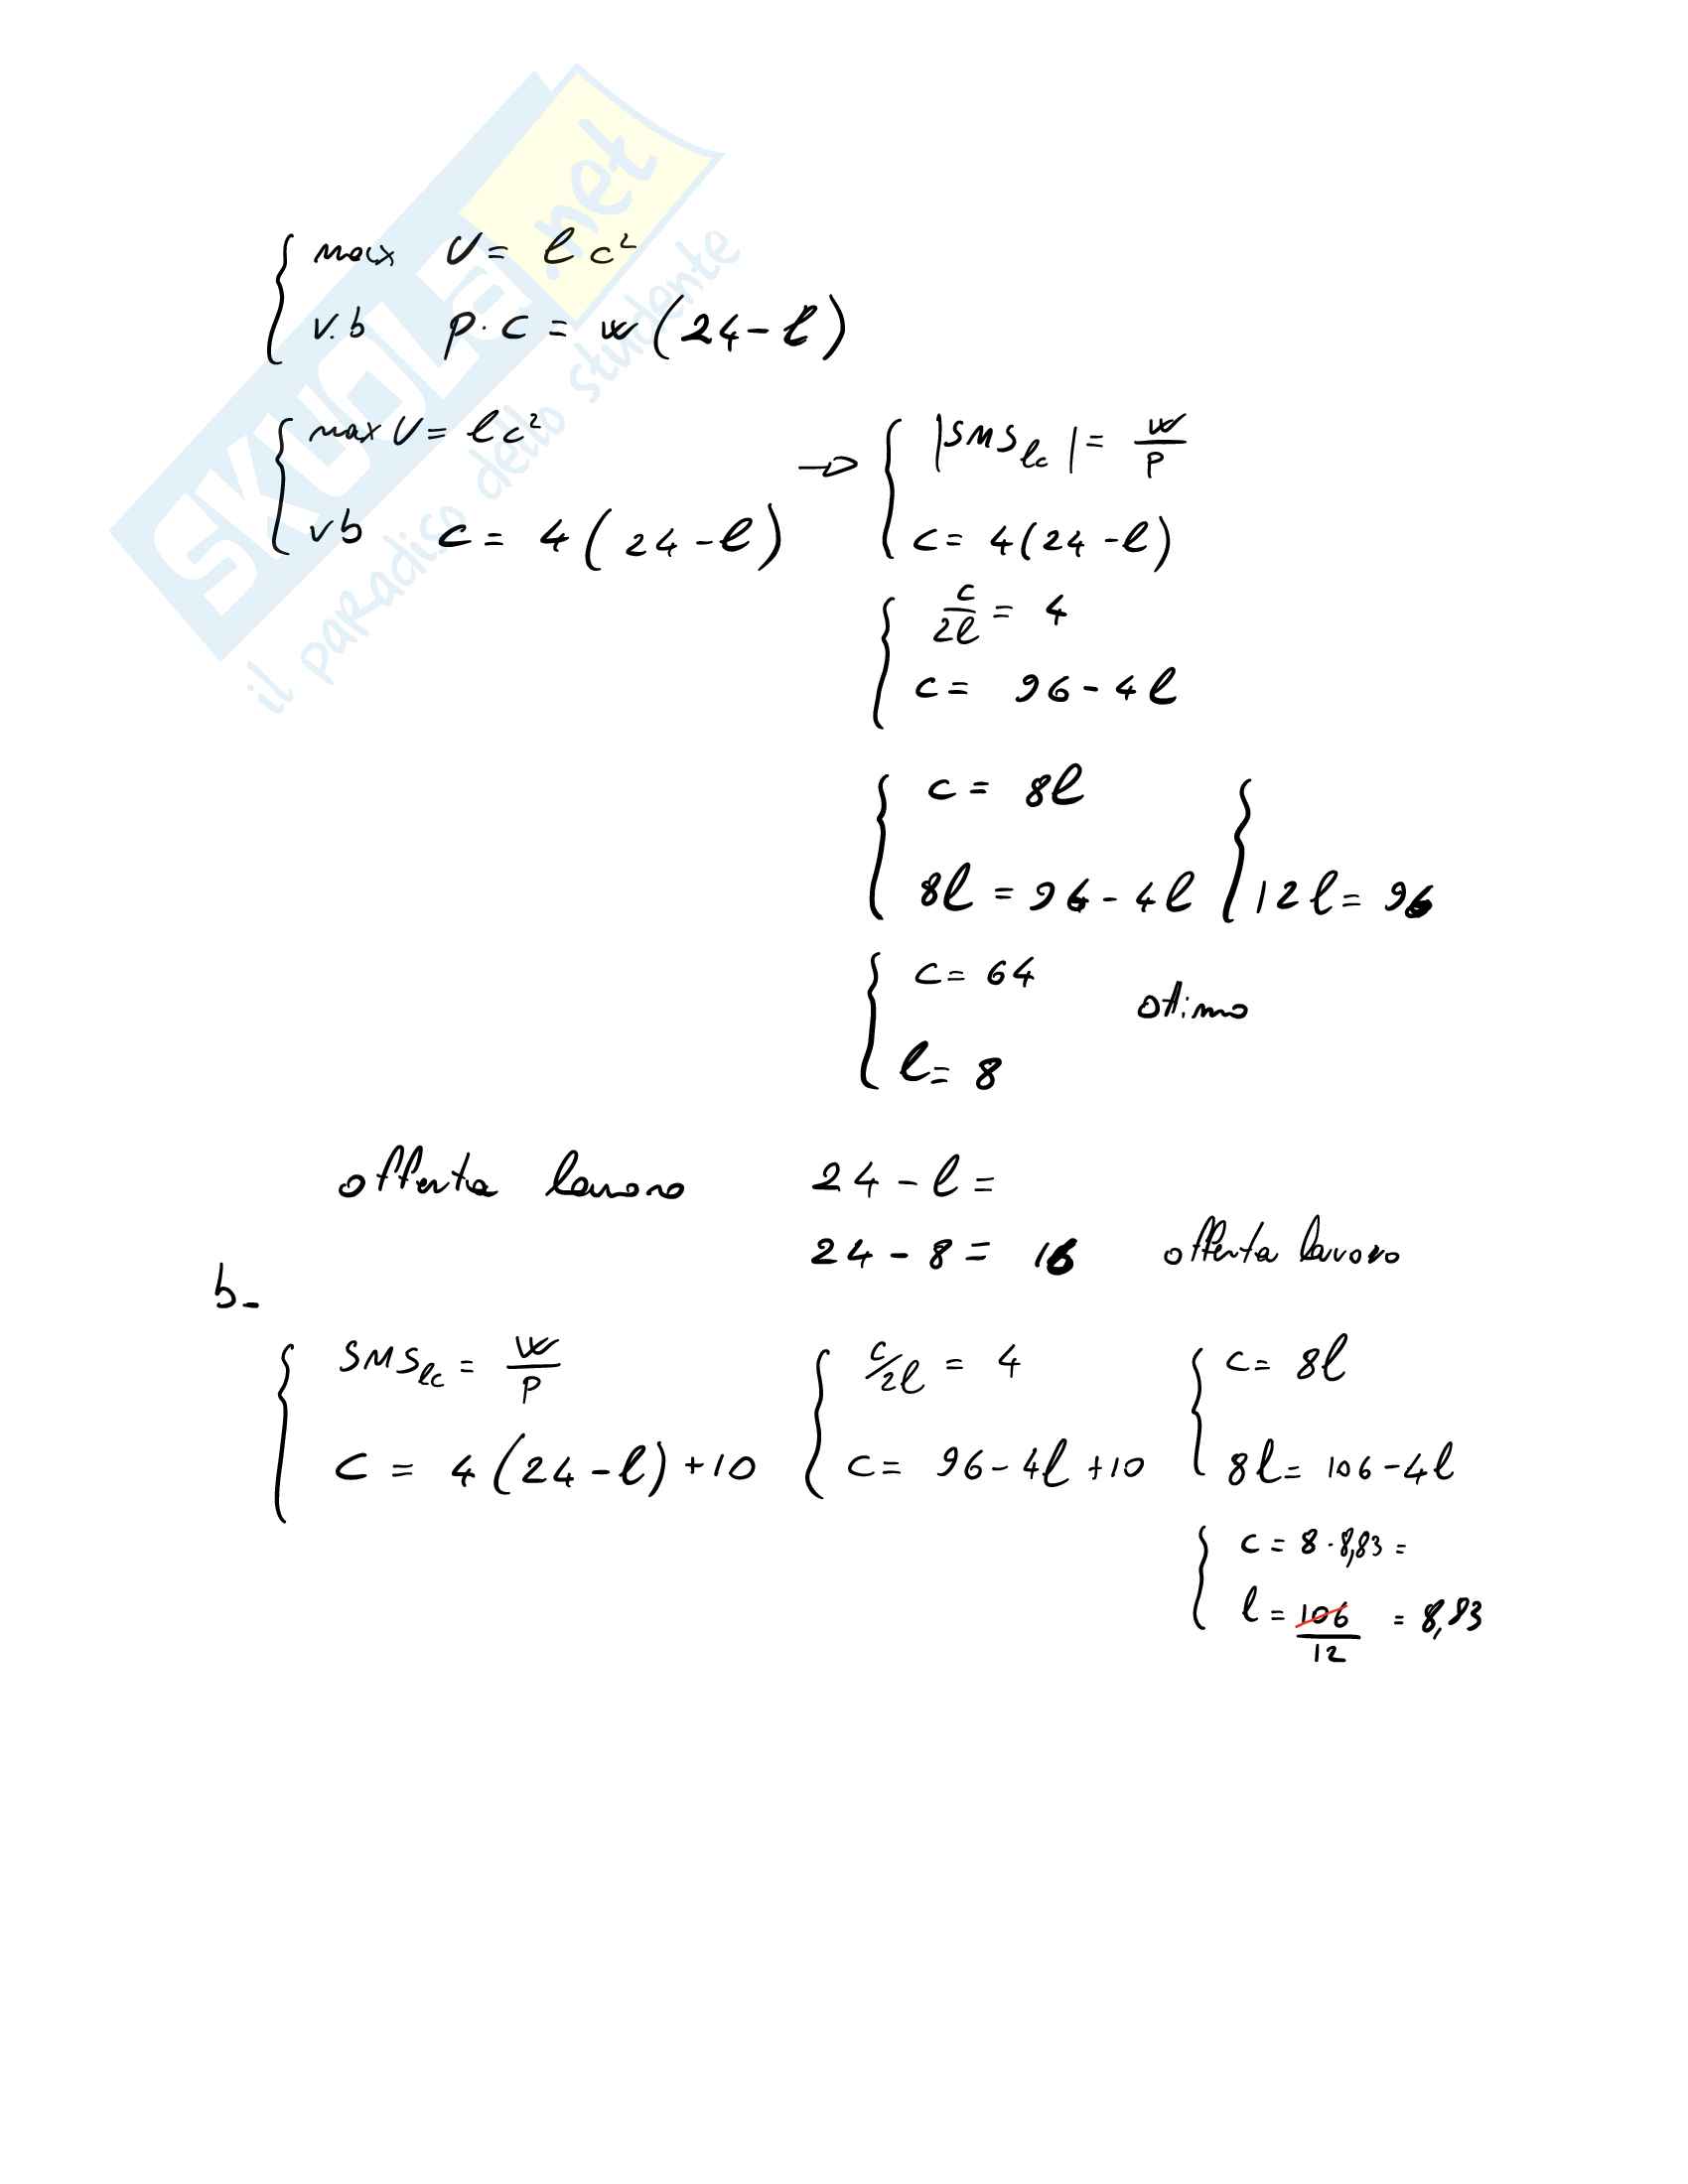 SKUOLA.net
il paradiso dello studente
max U = l c²
v.b p·c = w(24-l)
max U = l c² → |SMS lc| = w/p
vb c = 4(24-l) c = 4(24-l)
c/2l = 4
c = 96-4l
c = 8l
8l = 96-4l 12l = 96
c = 64 otimo
l = 8
offerta lavoro 24-l =
24-8 = 16 offerta lavoro
b-
SMS lc = w/p c/2l = 4 c = 8l
c = 4(24-l)+10 c = 96-4l+10 8l = 106-4l
c = 8·8,83 =
l = 106/12 = 8,83